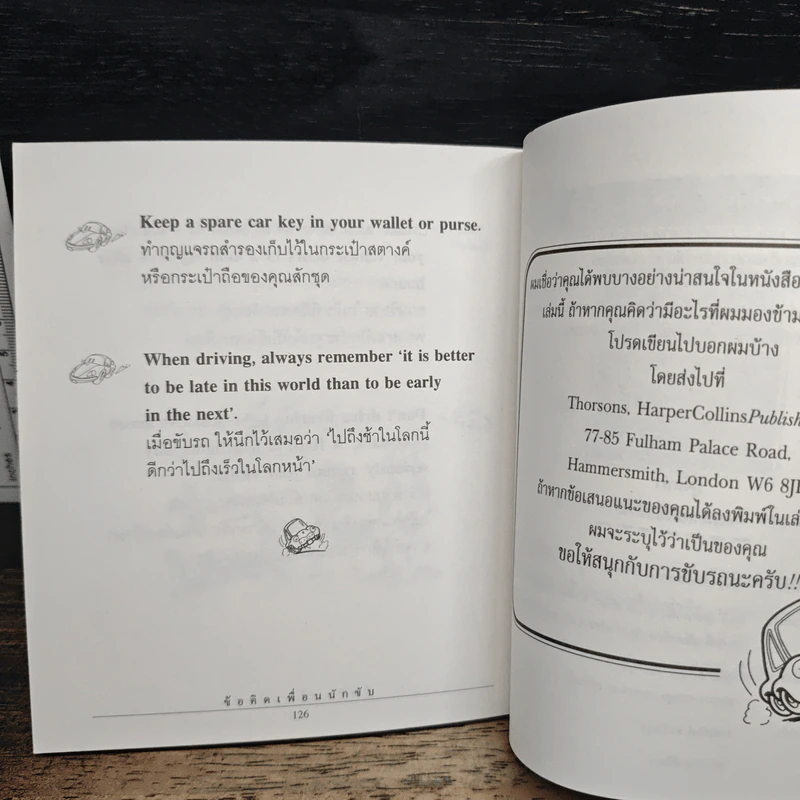 Keep a spare car key in your wallet or purse.
ทำกุญแจรถสำรองเก็บไว้ในกระเป๋าสตางค์
หรือกระเป๋าถือของคุณสักชุด
When driving, always remember ‘it is better
to be late in this world than to be early
in the next’.
เมื่อขับรถ ให้นึกไว้เสมอว่า ‘ไปถึงช้าในโลกนี้
ดีกว่าไปถึงเร็วในโลกหน้า’
ข้อคิดเพื่อนนักขับ
126
ผมเชื่อว่าคุณได้พบบางอย่างน่าสนใจในหนังสือ
เล่มนี้ ถ้าหากคุณคิดว่ามีอะไรที่ผมมองข้าม
โปรดเขียนไปบอกผมบ้าง
โดยส่งไปที่
Thorsons, HarperCollinsPublish
77-85 Fulham Palace Road,
Hammersmith, London W6 8J
ถ้าหากข้อเสนอแนะของคุณได้ลงพิมพ์ในเล่
ผมจะระบุไว้ว่าเป็นของคุณ
ขอให้สนุกกับการขับรถนะครับ!!
inches